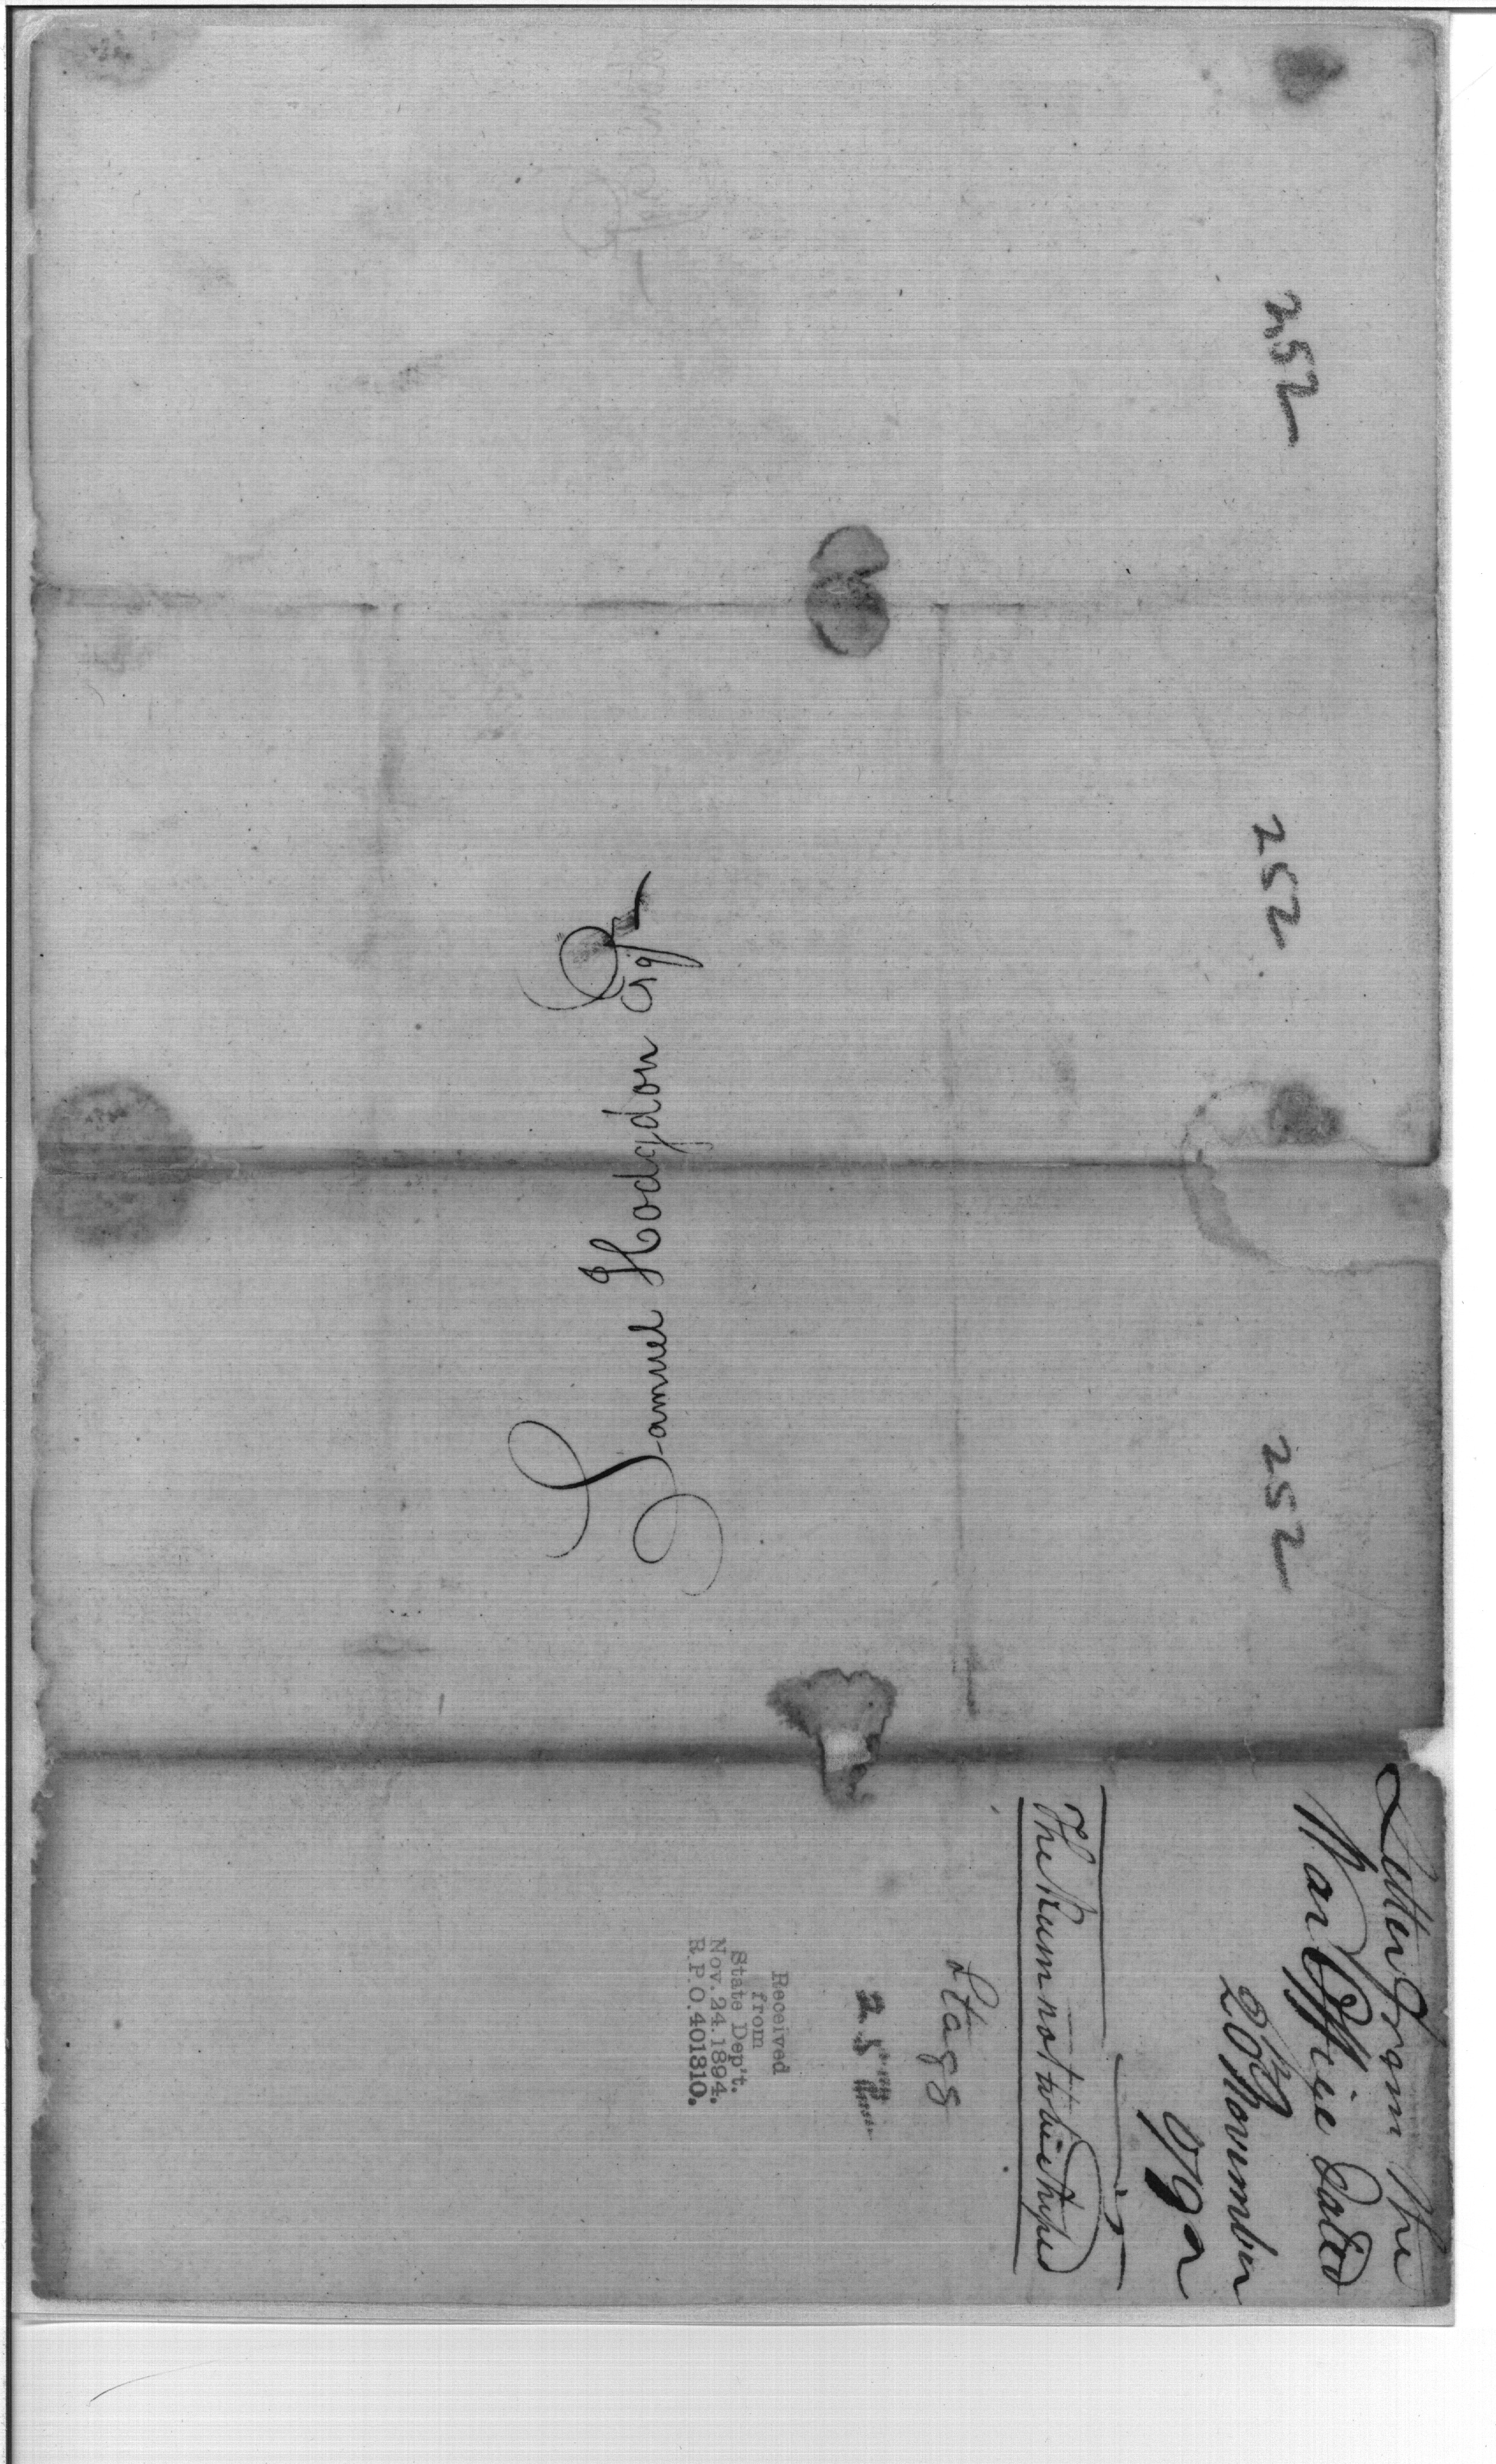 252
252
252
Samuel Hodgdon Esqr
Letter from the
War Office Dated
26 November
1792
The Rum not to be shiped
Stagg
25
Received
from
State Dep't.
Nov. 24. 1894.
R.P.O. 401310.